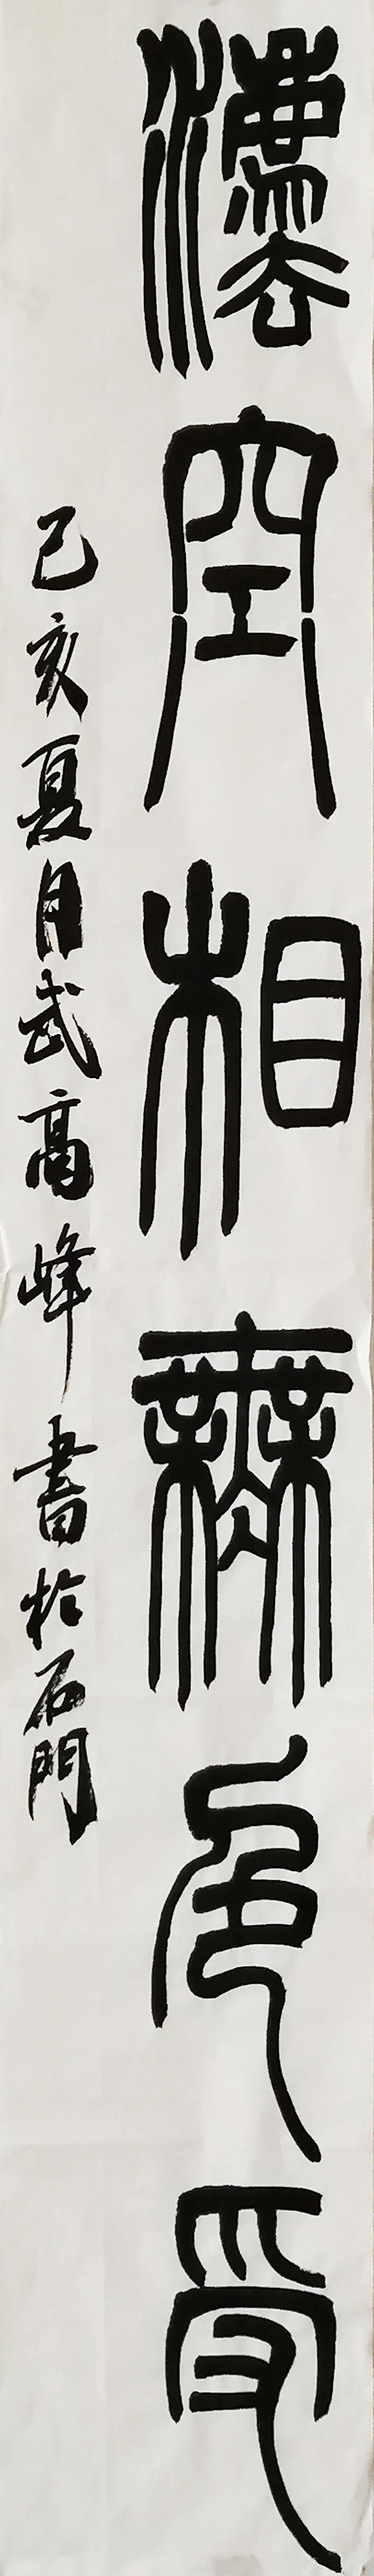 灋空相無色受
己亥夏月武高峰書於石門